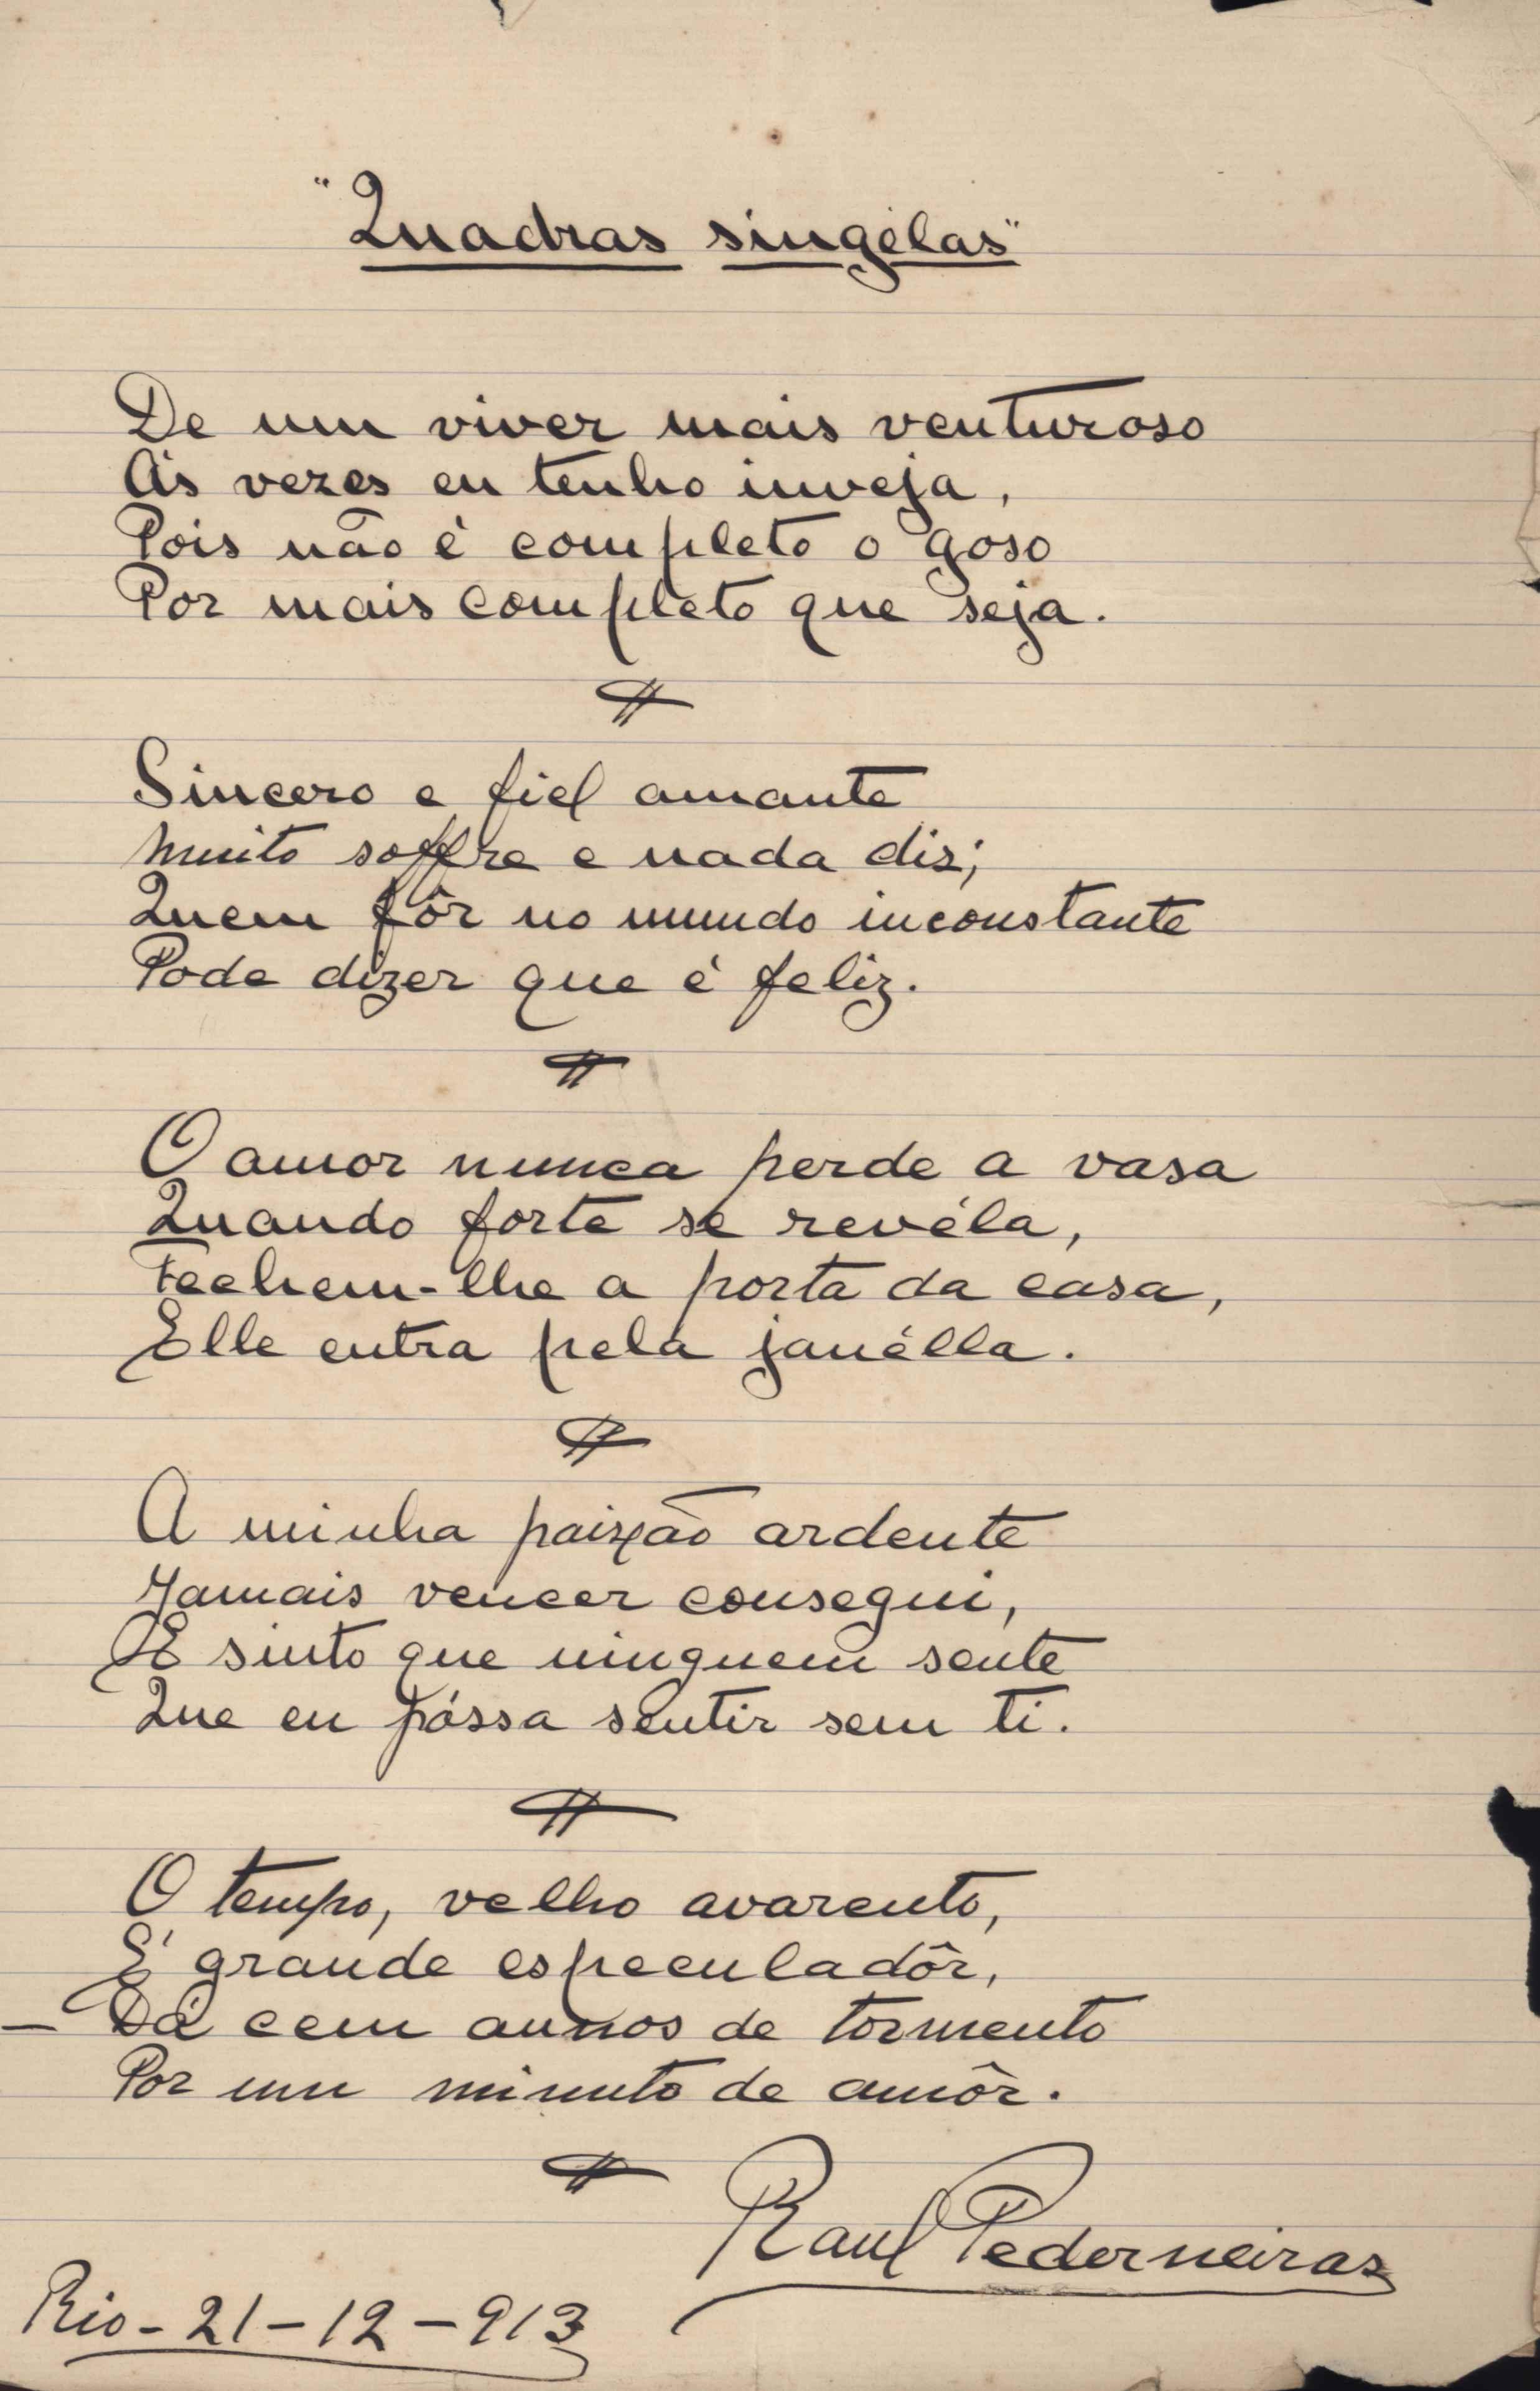 "Quadras singélas"
De um viver mais venturoso
Ás vezes eu tenho inveja,
Pois não é completo o goso
Por mais completo que seja.
Sincero e fiel amante
Muito soffre e nada diz;
Quem fôr no mundo inconstante
Pode dizer que é feliz.
O amor nunca perde a vasa
Quando forte se revéla,
Fechem-lhe a porta da casa,
Elle entra pela janélla.
A minha paixão ardente
Jamais vencer consegui,
E sinto que ninguem sente
Que eu póssa sentir sem ti.
O tempo, velho avarento,
É grande especuladôr,
– Dá cem annos de tormento
Por um minuto de amôr.
Raul Pederneiras
Rio - 21 - 12 - 913